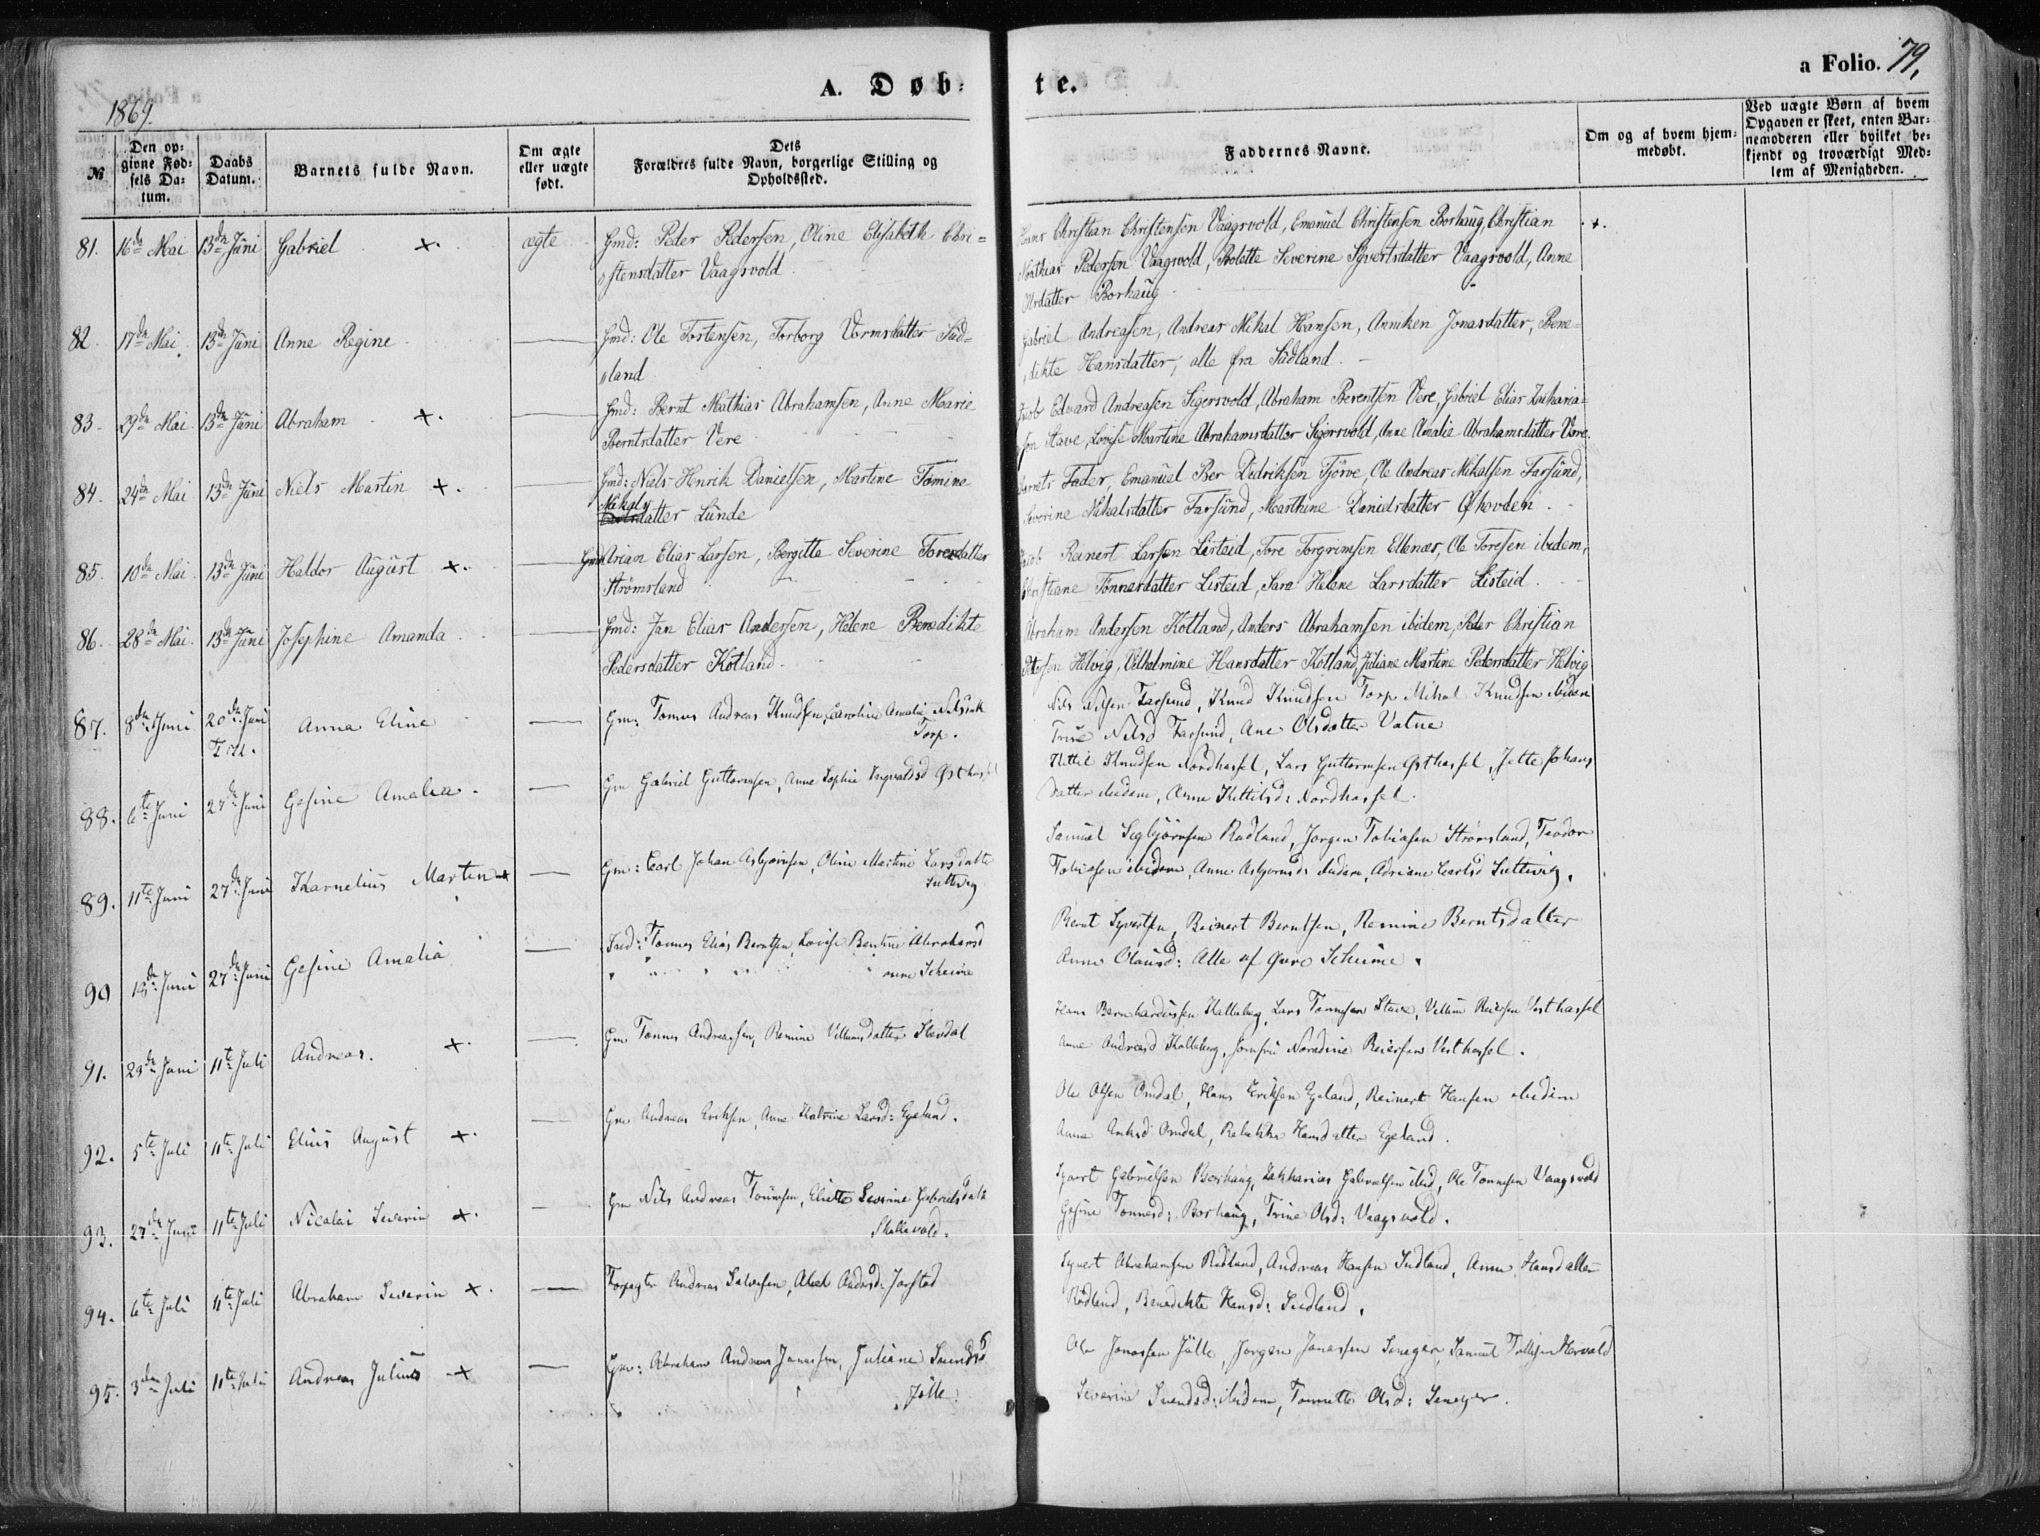 1869.
A. Døb-
te.
a Folio. 79.
№
Den op-
givne Fød-
sels Da-
tum.
Daabs
Datum.
Barnets fulde Navn.
Om ægte
eller uægte
født.
Dets
Forældres fulde Navn, borgerlige Stilling og
Opholdssted.
Faddernes Navne.
Om og af hvem hjem-
medøbt.
Ved uægte Børn af hvem
Opgaven er skeet, enten Bar-
nemoderen eller hvilket be-
kjendt og troværdigt Med-
lem af Menigheden.
81. 16de Mai 13de Juni Gabriel +. ægte Gmd: Peder Pedersen, Oline Elisabeth Chri=
stensdatter Vaagsvold
Christian Christensen Vaagsvold, Emanuel Christensen Borhaug, Christian +.
Mathias Pedersen Vaagsvold, Bolette Severine Syvertsdatter Vaagsvold, Anne
Olsdatter Borhaug
82. 17de Mai 13de Juni Anne Regine Gmd: Ole Tostensen, Torborg Vormsdatter Sud=
land
Gabriel Andreasen, Andreas Mikal Hansen, Anniken Jonasdatter, Bene=
dikte Hansdatter, alle fra Sudland.
83. 29de Mai 13de Juni Abraham +. Gmd: Bernt Mathias Abrahamsen, Anne Marie
Berntsdatter Vere
Jacob Edvard Andreasen Sigersvold, Abraham Berentsen Vere, Gabriel Elias Zacharia=
sen Stave, Lovise Martine Abrahamsdatter Sigersvold, Anne Amalie Abrahamsdatter Vere.
84. 24de Mai 13de Juni Niels Martin +. Gmd: Niels Henrik Danielsen, Martine Tomine
Mikals
datter Lunde
Barnets Fader, Emanuel Ber Didriksen Tjörve, Ole Andreas Mikalsen Farsund,
Severine Mikalsdatter Farsund, Marthine Danielsdatter Øhovden.
85. 10de Mai 13de Juni Haldor August +. Gmd: Arian Elias Larsen, Bergitte Severine Toresdatter
Strømsland
Jacob Reinert Larsen Listeid, Tore Torgrimsen Ellenæs, Ole Toresen ibidem,
Christiane Tønnesdatter Listeid, Sara Helene Larsdatter Listeid.
86. 28de Mai 13de Juni Josephine Amanda Gmd: Jan Elias Andersen, Helene Benedikte
Pedersdatter Kotland.
Abraham Andersen Kotland, Anders Abrahamsen ibidem, Peder Christian
Pettersen Helvig, Vilhelmine Hansdatter Kotland, Juliane Martine Pedersdatter Helvig
87. 8de Juni 20de Juni Anna Eline Gm: Tomas Andreas Knudsen, Caroline Amalie Nilsdatt
Torp.
Nils Nilsen Farsund, Knud Knudsen Torp Mikal Knudsen ibidem
Trine Nilsd Farsund, Ane Olsdatter Vatne
88. 6te Juni 27de Juni Gesine Amalia. Gm Gabriel Guttormsen, Anne Sophie Ingvaldsd Østhassel
Kittil Knudsen Nordhassel, Lars Guttormsen Østhassel, Jette Johans
datter ibidem, Anne Kittilsd: Nordhassel.
89. 11te Juni 27de Juni Karnelius Martin + Gm: Carl Johan Asbjørnsen, Oline Martine Larsdatte
Luttvig
Samuel Segbjørnsen Rudland, Jørgen Tobiasen Strømsland, Teodor
Tobiasen ibidem, Anne Asbjornsd: ibidem, Adriane Carlsd Luttvig.
90 27de Juni Gesine Amalia Tønnes Elias Berntsen, Lovise Bentine Abrahamsd
Bernt Syvertsen, Reinert Berntsen, Remine Berntsdatter
Anne Olausd: Alle af Øvre Skeime.
91. 29de Juni 11te Juli Andreas. +. Gm Tønnes Andreassen, Remine Villumsdatter Skeidal
Hans Bernhardussen Kalleberg, Lars Tønnesen Stave, Villum Reiersen Vesthassel
Anne Andreasd Kalleberg, Jomfru Nordine Reiersen Vesthassel.
92. 5te Juli 11te Juli Elius August +. Gm Andreas Eriksen, Anne Katrine Larsd: Egeland.
Ole Olsen Omdal, Hans Eriksen Egeland, Reinert Hansen ibidem
Anne Eriksd Omdal, Rebekka Hansdatter Egeland.
93. 27de Juni 11te Juli Nicolai Severin +. Gm Nils Andreas Tønnesen, Eliete Severine Gabrielsdatt
Skallevold.
Syvert Gabrielsen Borhaug, Zakharias Gabrielsen ibid, Ole Tønnesen Vaagsvold
Gesine Tonnesd: Borhaug, Trine Olsd: Vaagsvold.
94. 6te Juli 11te Juli Abraham Severin +. Forpagter Andreas Salvesen, Andersd: Jøstad
Syvert Abrahamsen Rødland, Andreas Hansen Sudland, Anne Hansdatter
Rødland, Benedikte Hansd: Sudland.
95. 3die Juli 11te Juli Andreas Julius + Gm: Abraham Andreas Jonassen, Juliane Svendsd
Jølle.
Ole Jonassen Jølle, Jørgen Jonassen Seneger, Samuel Tollefsen Hervold
Severine Svendsd: ibidem, Tonnette Olsd: Seneger.